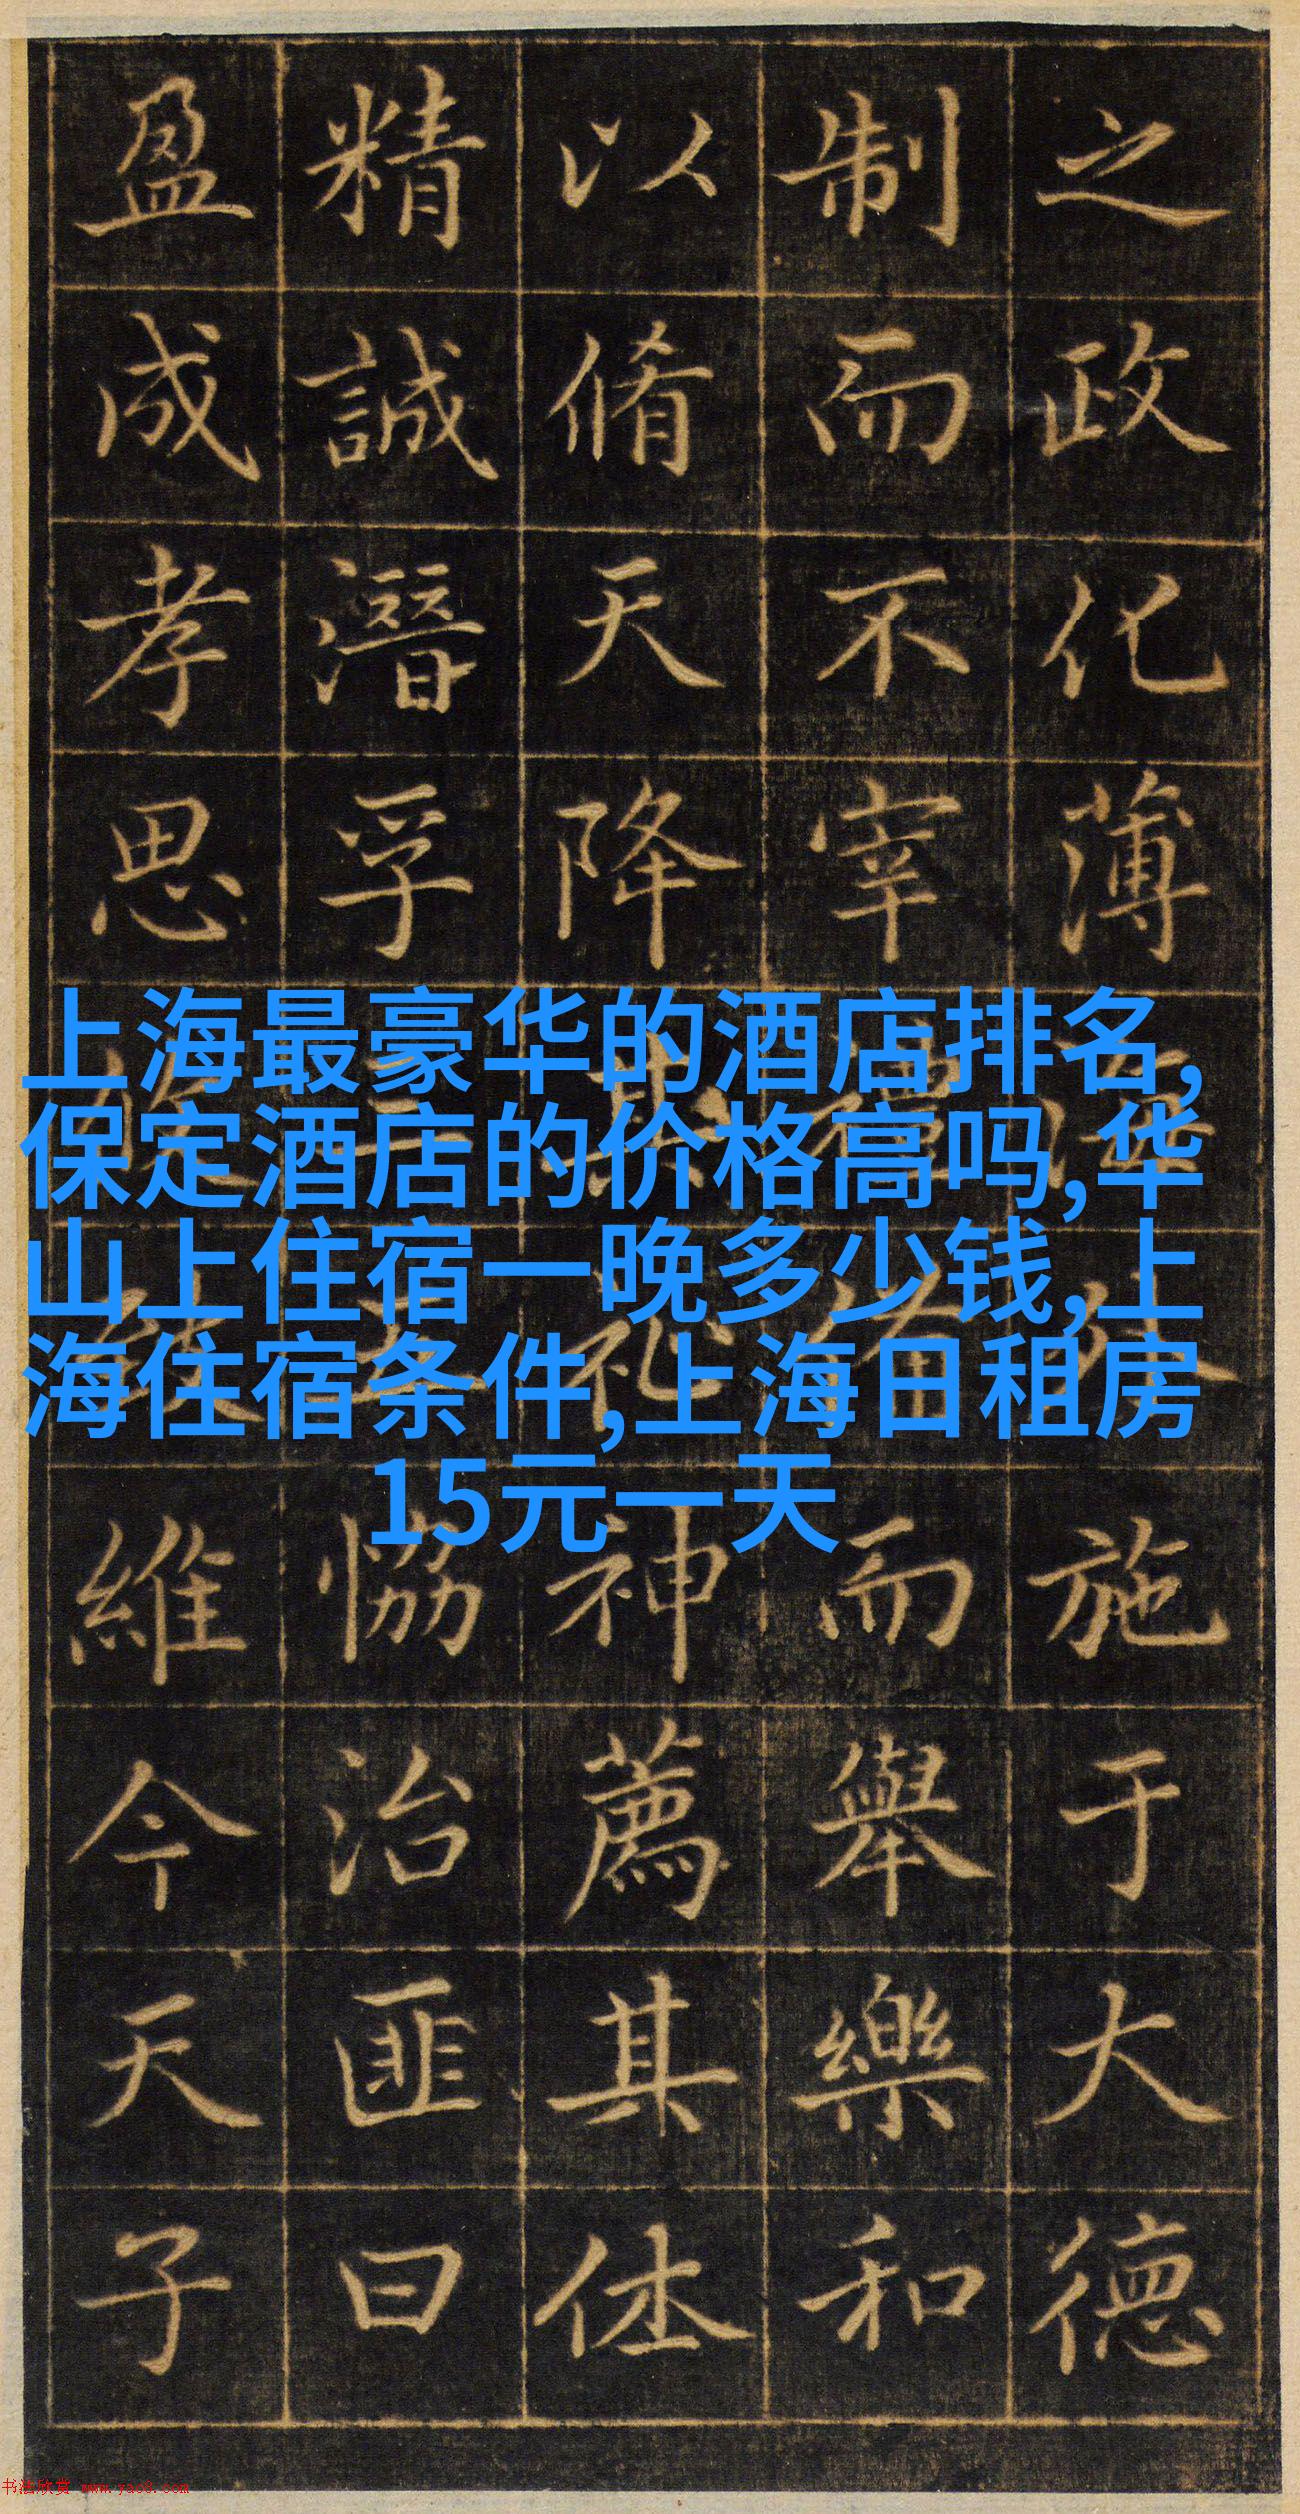 上海最豪华的酒店排名,
保定酒店的价格高吗,华
山上住宿一晚多少钱,上
海住宿条件,上海日租房
15元一天
之政化薄施于大德
制而不宰而舉樂和
以脩天降其神薦其休
精誠潛孚恊治匪曰
盈成孝思維今天子
书法欣赏 www.yac8.com